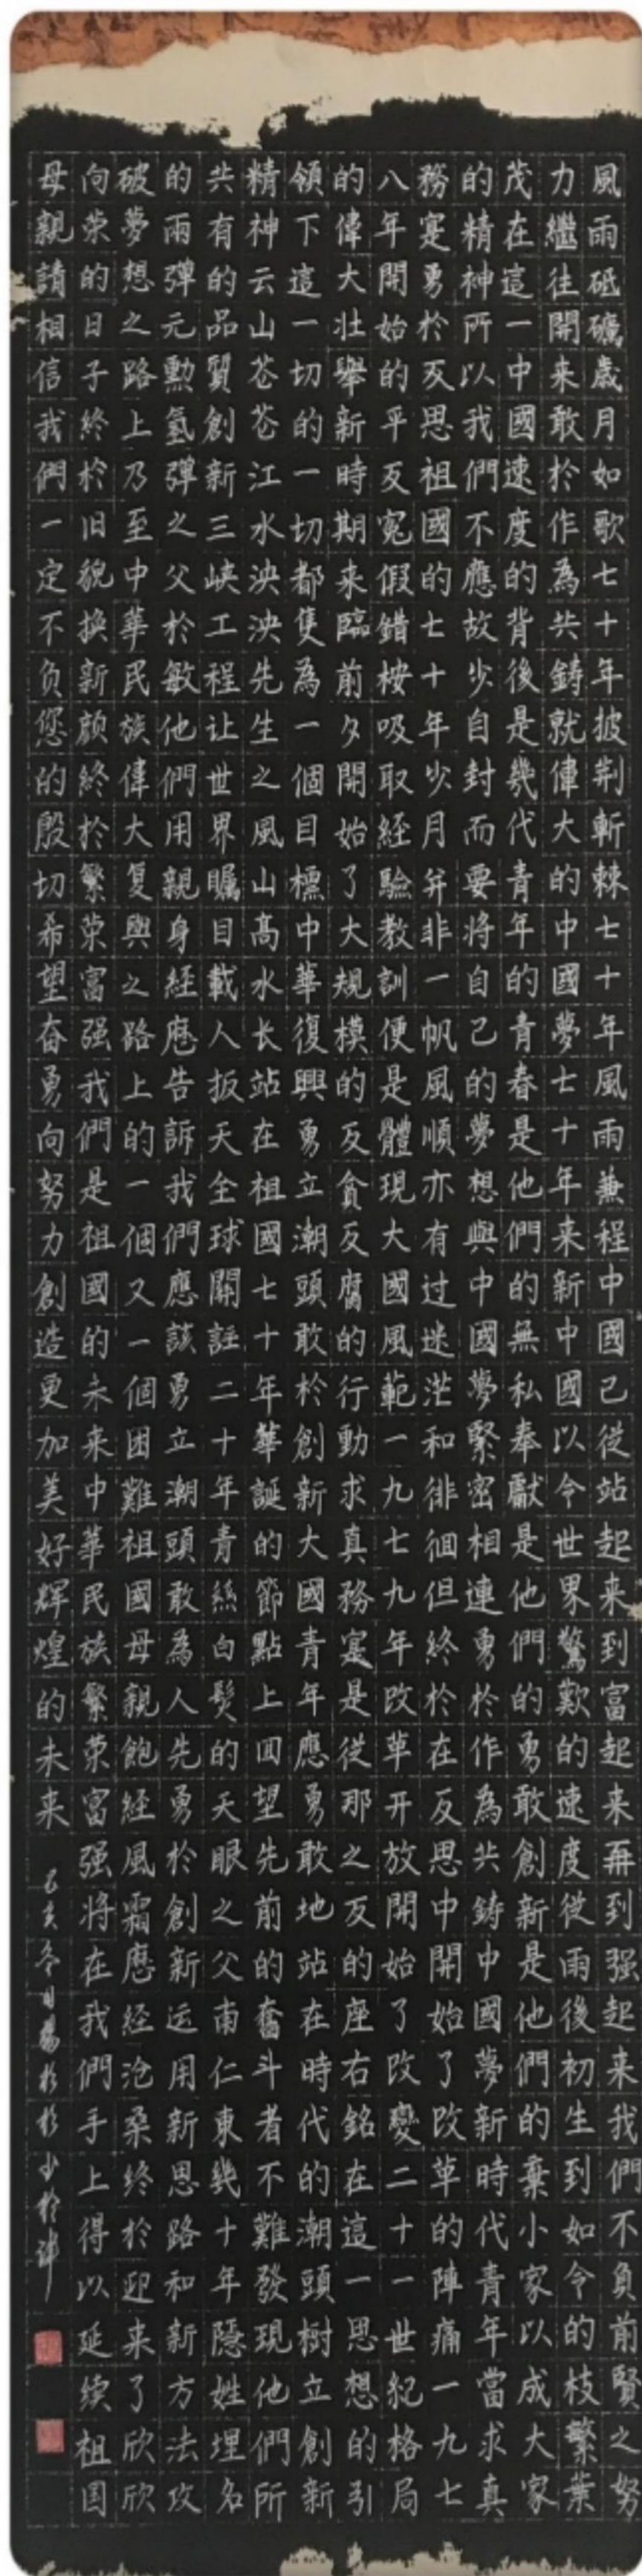 風雨砥礪歲月如歌七十年披荆斬棘七十年風雨兼程中國已從站起来到富起来再到强起来我們不負前賢之努
力繼往開来敢於作為共鋳就偉大的中國夢七十年来新中國以令世界驚歎的速度從雨後初生到如今的枝繁葉
茂在這一中國速度的背後是幾代青年的青春是他們的無私奉獻是他們的勇敢創新是他們的棄小家以成大家
的精神所以我們不應故步自封而要將自己的夢想與中國夢緊密相連勇於作為共鋳中國夢新時代青年當求真
務寔勇於反思祖國的七十年岁月并非一帆風順亦有过迷茫和徘徊但終於在反思中開始了改革的陣痛一九七
八年開始的平反冤假錯桉吸取経驗教訓便是體現大國風範一九七九年改革开放開始了改變二十一世紀格局
的偉大壮舉新時期来臨前夕開始了大規模的反貪反腐的行動求真務寔是從那之反的座右銘在這一思想的引
領下這一切的一切都隻為一個目標中華復興勇立潮頭敢於創新大國青年應勇敢地站在時代的潮頭樹立創新
精神云山苍苍江水泱泱先生之風山高水长站在祖國七十年華誕的節點上回望先前的奮斗者不難發現他們所
共有的品質創新三峡工程让世界瞩目載人扳天全球關註二十年青絲白髮的天眼之父南仁東幾十年隱姓埋名
的兩彈元勳氢彈之父於敏他們用親身経歷告訴我們應該勇立潮頭敢為人先勇於創新运用新思路和新方法攻
破夢想之路上乃至中華民族偉大复興之路上的一個又一個困難祖國母親飽経風霜應経沧桑終於迎来了欣欣
向荣的日子終於旧貌换新颜終於繁荣富强我們是祖國的未来中華民族繁荣富强将在我們手上得以延续祖国
母親請相信我們一定不负您的殷切希望奋勇向努力創造更加美好輝煌的未来